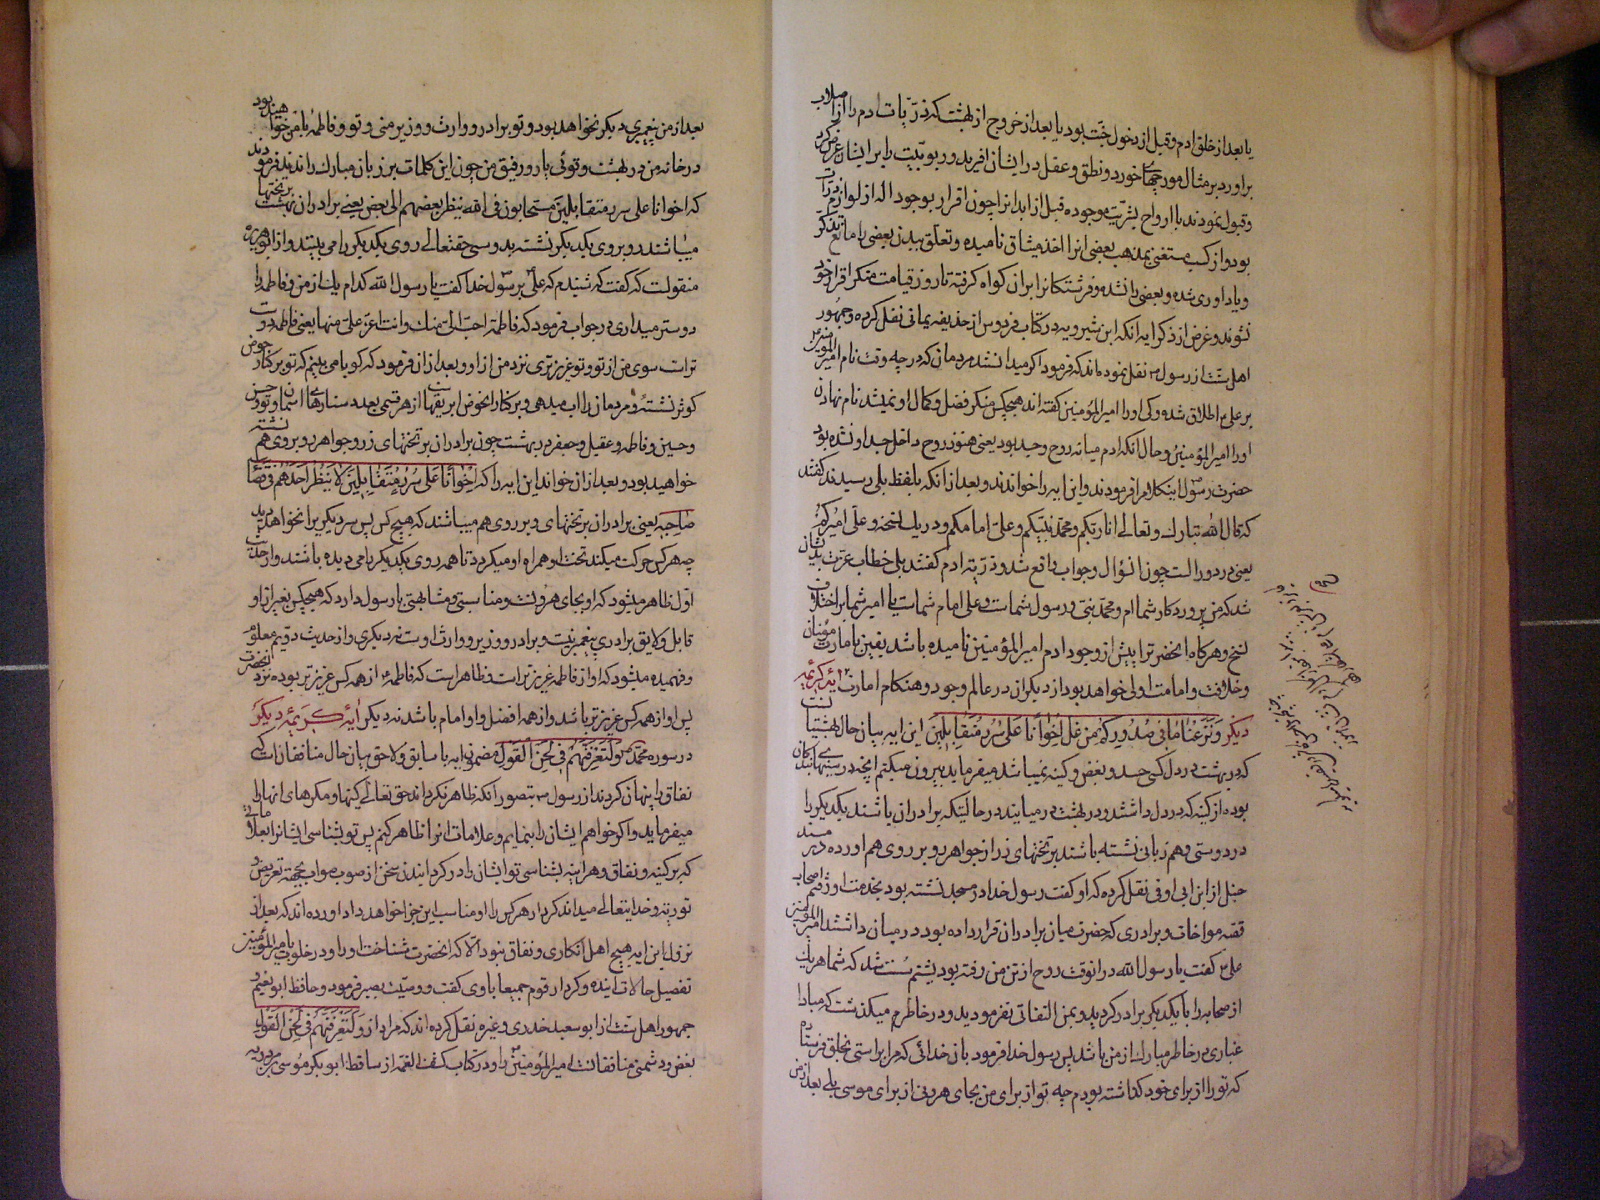 یا بعد از خلق ادم و قبل از دخول جنّت بود یا بعد از خروج از بهشت که ذرّیات ادم را از اصلاب
براورد بر مثال مورچهای خورد و نطق و عقل در ایشان افرید و ربوبیّت را بر ایشان عرض کرد
وقبول نمودند با ارواح بشریّت موجوده قبل از ابدانرا چون اقرار بوجود اله از لوازم ذرّات
بود و از کسب مستغنی بمذهب بعضی انرا اخذ میثاق نامیده و تعلّق ببدن بعضی را مانع تذکّر
و یاداوری شده و بعضی را نشده و فرشتکانرا بران کواه کرفته تا روز قیامت منکر اقرار خود
نشوند و غرض از ذکر ایه انکه ابن شیرویه در کتاب فردوس از حذیفه یمانی نقل کرده و جمهور
اهل سنّت از رسول نقل نموده اند که فرمود اکر میدانستند مردمان که در چه وقت نام امیر المؤمنین
بر علی اطلاق شده و کی او را امیر المؤمنین کفته اند هیچکس منکر فضل و کمال او نمیشد نام نهادن
او را امیر المؤمنین و حال انکه ادم میانه روح و جسد بود یعنی هنوز روح داخل جسد او نشده بود
حضرت رسول اینکلام فرمودند و این ایه را خواندند و بعد از انکه بلفظ بلی رسیدند کفتند
که قال الله تبارک و تعالی انا ربّکم و محمّد نبیّکم و علی امامکم و در یک نسخه و علی امیرکم
یعنی در روز الست چون سؤال و جواب واقع شد و ذرّیّه ادم کفتند بلی خطاب عزّت بدیشان
شد که من پروردکار شماام و محمّد نبی و رسول شماست و علی امام شماست یا امیر شما بر اختلاف
نسخ و هرکاه انحضرترا پیش از وجود ادم امیر المؤمنین نامیده باشد یقین بامارت مؤمنان
و خلافت و امامت اولی خواهد بود از دیکران در عالم وجود و هنکام امارت ایهٔ کریمه
دیکر وَنَزَعْنَا مَا فِي صُدُورِهِمْ مِنْ غِلٍّ اِخْوَانًا عَلَى سُرُرٍ مُتَقَابِلِينَ این ایه بیان حال بهشتیانست
که در بهشت در دل کسی حسد و بغض و کینه نمیباشد میفرماید بیرون میکنم انچه در سینهای ایشان
بوده از کینه که در دل داشتند و در بهشت در میایند در حالتیکه برادران باشند یکدیکر را
در دوستی و هم زبانی نشسته باشند بر تختهای زر از جواهر و بر روی هم اورده در مسند
حنبل از ابن ابی اوفی نقل کرده که او کفت رسول خدا در مسجد نشسته بود بخدمت او رفتم اصحاب
قصّه مواخات و برادری که حضرت میان برادران قرار داده بود در میان داشتند امیر المؤمنین
علی کفت یا رسول الله در انوقت روح از تن من رفته بود پشتم سست شد که شما هر یک
از صحابه را با یکدیکر برادر کردید و بمن التفاتی نفرمودید و در خاطرم میکذشت که مبادا
غباری در خاطر مبارک از من باشد پس رسول خدا فرمود بان خدائی که مرا براستی بخلق فرستاده
که تو را از برای خود کذاشته بودم چه تو از برای من بجای هرونی از برای موسی بلی بعد از من
بعد از من پیغمبری دیکر نخواهد بود و تو برادر و وارث و وزیر منی و تو و فاطمه با من خواهید بود
در خانه من در بهشت و توئی یار و رفیق من چون این کلمات بر زبان مبارک راندند فرمودند
که اخوانا علی سرر متقابلین متحابون فی الله ینظر بعضهم الی بعض یعنی برادران بر تختها بهشت
میباشند رو بروی یکدیکر نشسته بدوستی حقتعالی روی یکدیکر را می بینند و از ابو هریره
منقولست که کفت که شنیدم که علی بر رسول خدا کفت یا رسول الله کدام یک از من و فاطمه را
دوستر میداری در جواب فرمود که فاطمة احبّ الیّ منک و انت اعزّ علیّ منها یعنی فاطمه دوست
ترست سوی من از تو و تو عزیزتری نزد من از او و بعد از ان فرمود که کویا می بینم که تو بر کنار حوض
کوثر نشستهٔ و مردمان را اب میدهی و بر کنار انحوض ابریقهاست از هر قسمی بعدد ستارهای اسمان و تو و حسن
و حسین و فاطمه و عقیل و جعفر در بهشت چون برادران بر تختهای زر و جواهر رو بروی هم نشسته
خواهید بود و بعد از ان خواند این ایه را که اِخْوَانًا عَلَى سُرُرٍ مُتَقَابِلِينَ لَا يَنْظُرُ اَحَدُهُمْ فِي قَفَا
صَاحِبِهِ یعنی برادران بر تختهای و بر روی هم میباشند که هیچ کس پس سر دیکریرا نخواهد دید
چه هر کس حرکت میکند تخت او همراه او میکردد تا همه روی یکدیکر را می دیده باشند و از حدیث
اوّل ظاهر میشود که او بجای هرونست و مناسبتی و مشابهتی با رسول دارد که هیچکس بغیر از او
قابل و لایق برادری پیغمبر نیست و برادر و وزیر و وارث اوست نه دیکری و از حدیث دویّم معلوم
و فهمیده میشود که او از فاطمه عزیزتر است و ظاهر است که فاطمه از همه کس عزیزتر بوده نزد انحضرت
پس او از همه کس عزیزتر باشد و از همه افضل و او امام باشد نه دیکری ایهٔ کریمهٔ دیکر
در سوره محمّد وَلَتَعْرِفَنَّهُمْ فِي لَحْنِ الْقَوْلِ مضمون ایه با سابق و لاحق بیان حال منافقانست که
نفاق را پنهان کردند از رسول بتصوّر انکه ظاهر نکرداند حق تعالی کینها و مکرهای انها را
میفرماید و اکر خواهم ایشان را بنمایم و علامات انرا ظاهر کنم پس تو بشناسی ایشانرا بعلاماتی
که بر کینه و نفاق و هر اینه بشناسی تو ایشان را در کردانیدن سخن از صوب صواب بجهة تعریض و
توریه و خدایتعالی میداند کردار هر کس را و مناسب این جزا خواهد داد اورده اند که بعد از
نزول این ایه هیچ اهل انکاری و نفاق نبود الّا که انحضرت شناخت او را و در خلوت با امیر المؤمنین
تفصیل حالات اینده و کردار قوم جمیعا باوی کفت و وصیّت بصبر فرمود و حافظ ابو نعیم و
جمهور اهل سنّت از ابو سعید خدری و غیره نقل کرده اند که مراد از وَلَتَعْرِفَنَّهُمْ فِي لَحْنِ الْقَوْلِ
بغض و دشمنی منافقانست امیر المؤمنین را و در کتاب کشف الغمّه از ابو بکر موسی مردویه